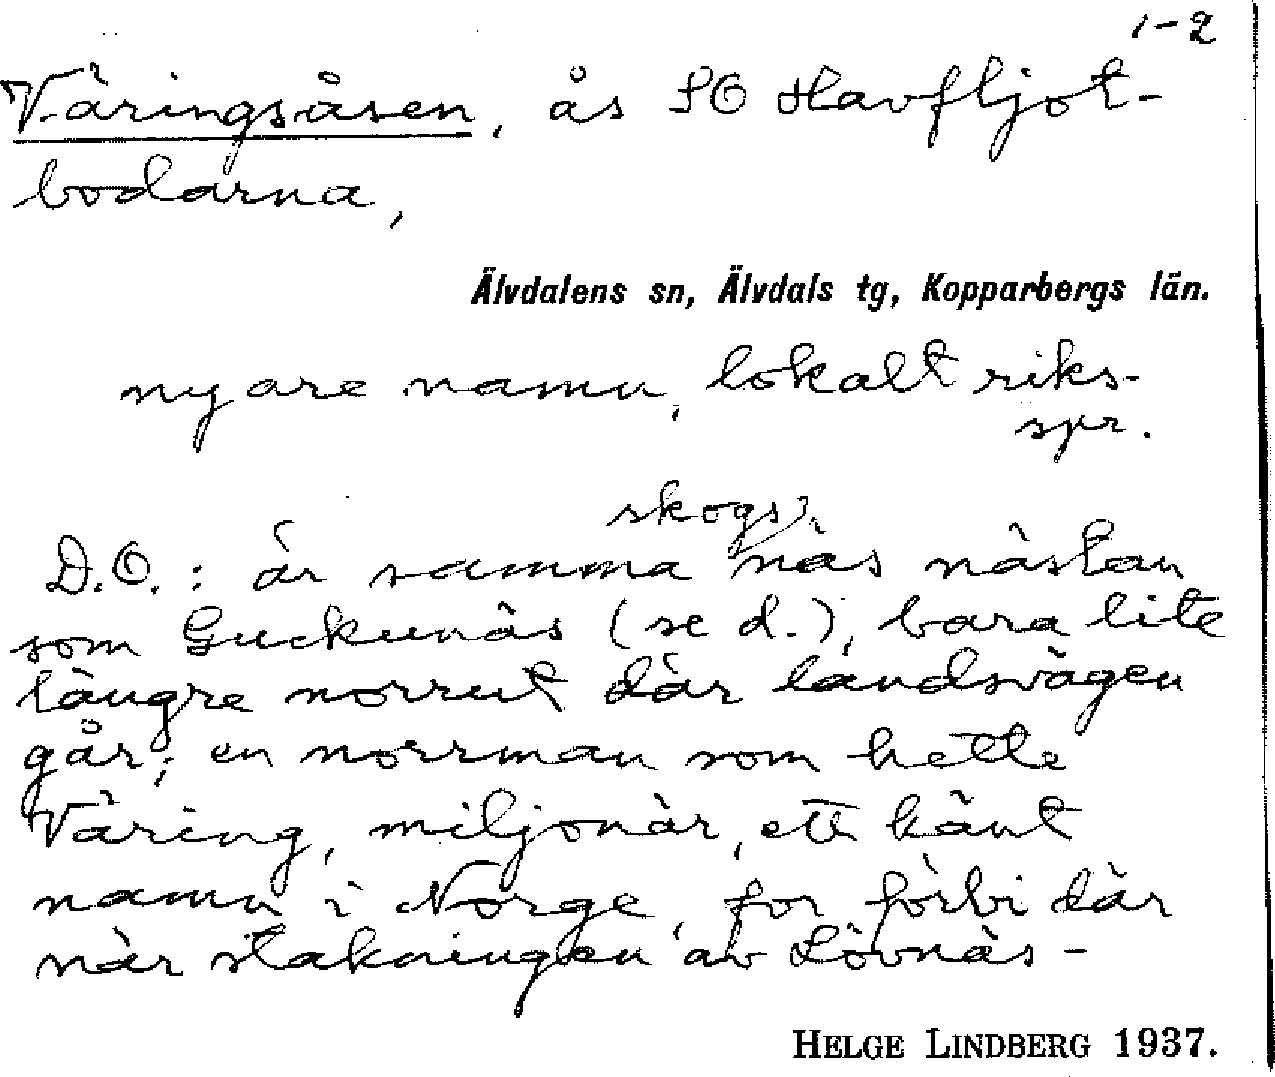 1-2
Väringsåsen, ås SO Havfljot-
bodarna,
Älvdalens sn, Älvdals tg, Kopparbergs län.
nyare namn, lokalt riks-
spr.
skogs
D.O.: är samma näs nästan
som Guckunäs (se d.), bara lite
längre norrut där landsvägen
går; en norrman som hette
Väring, miljonär, ett känt
namn i Norge, for förbi där
när stakningen av Lövnäs-
HELGE LINDBERG 1937.